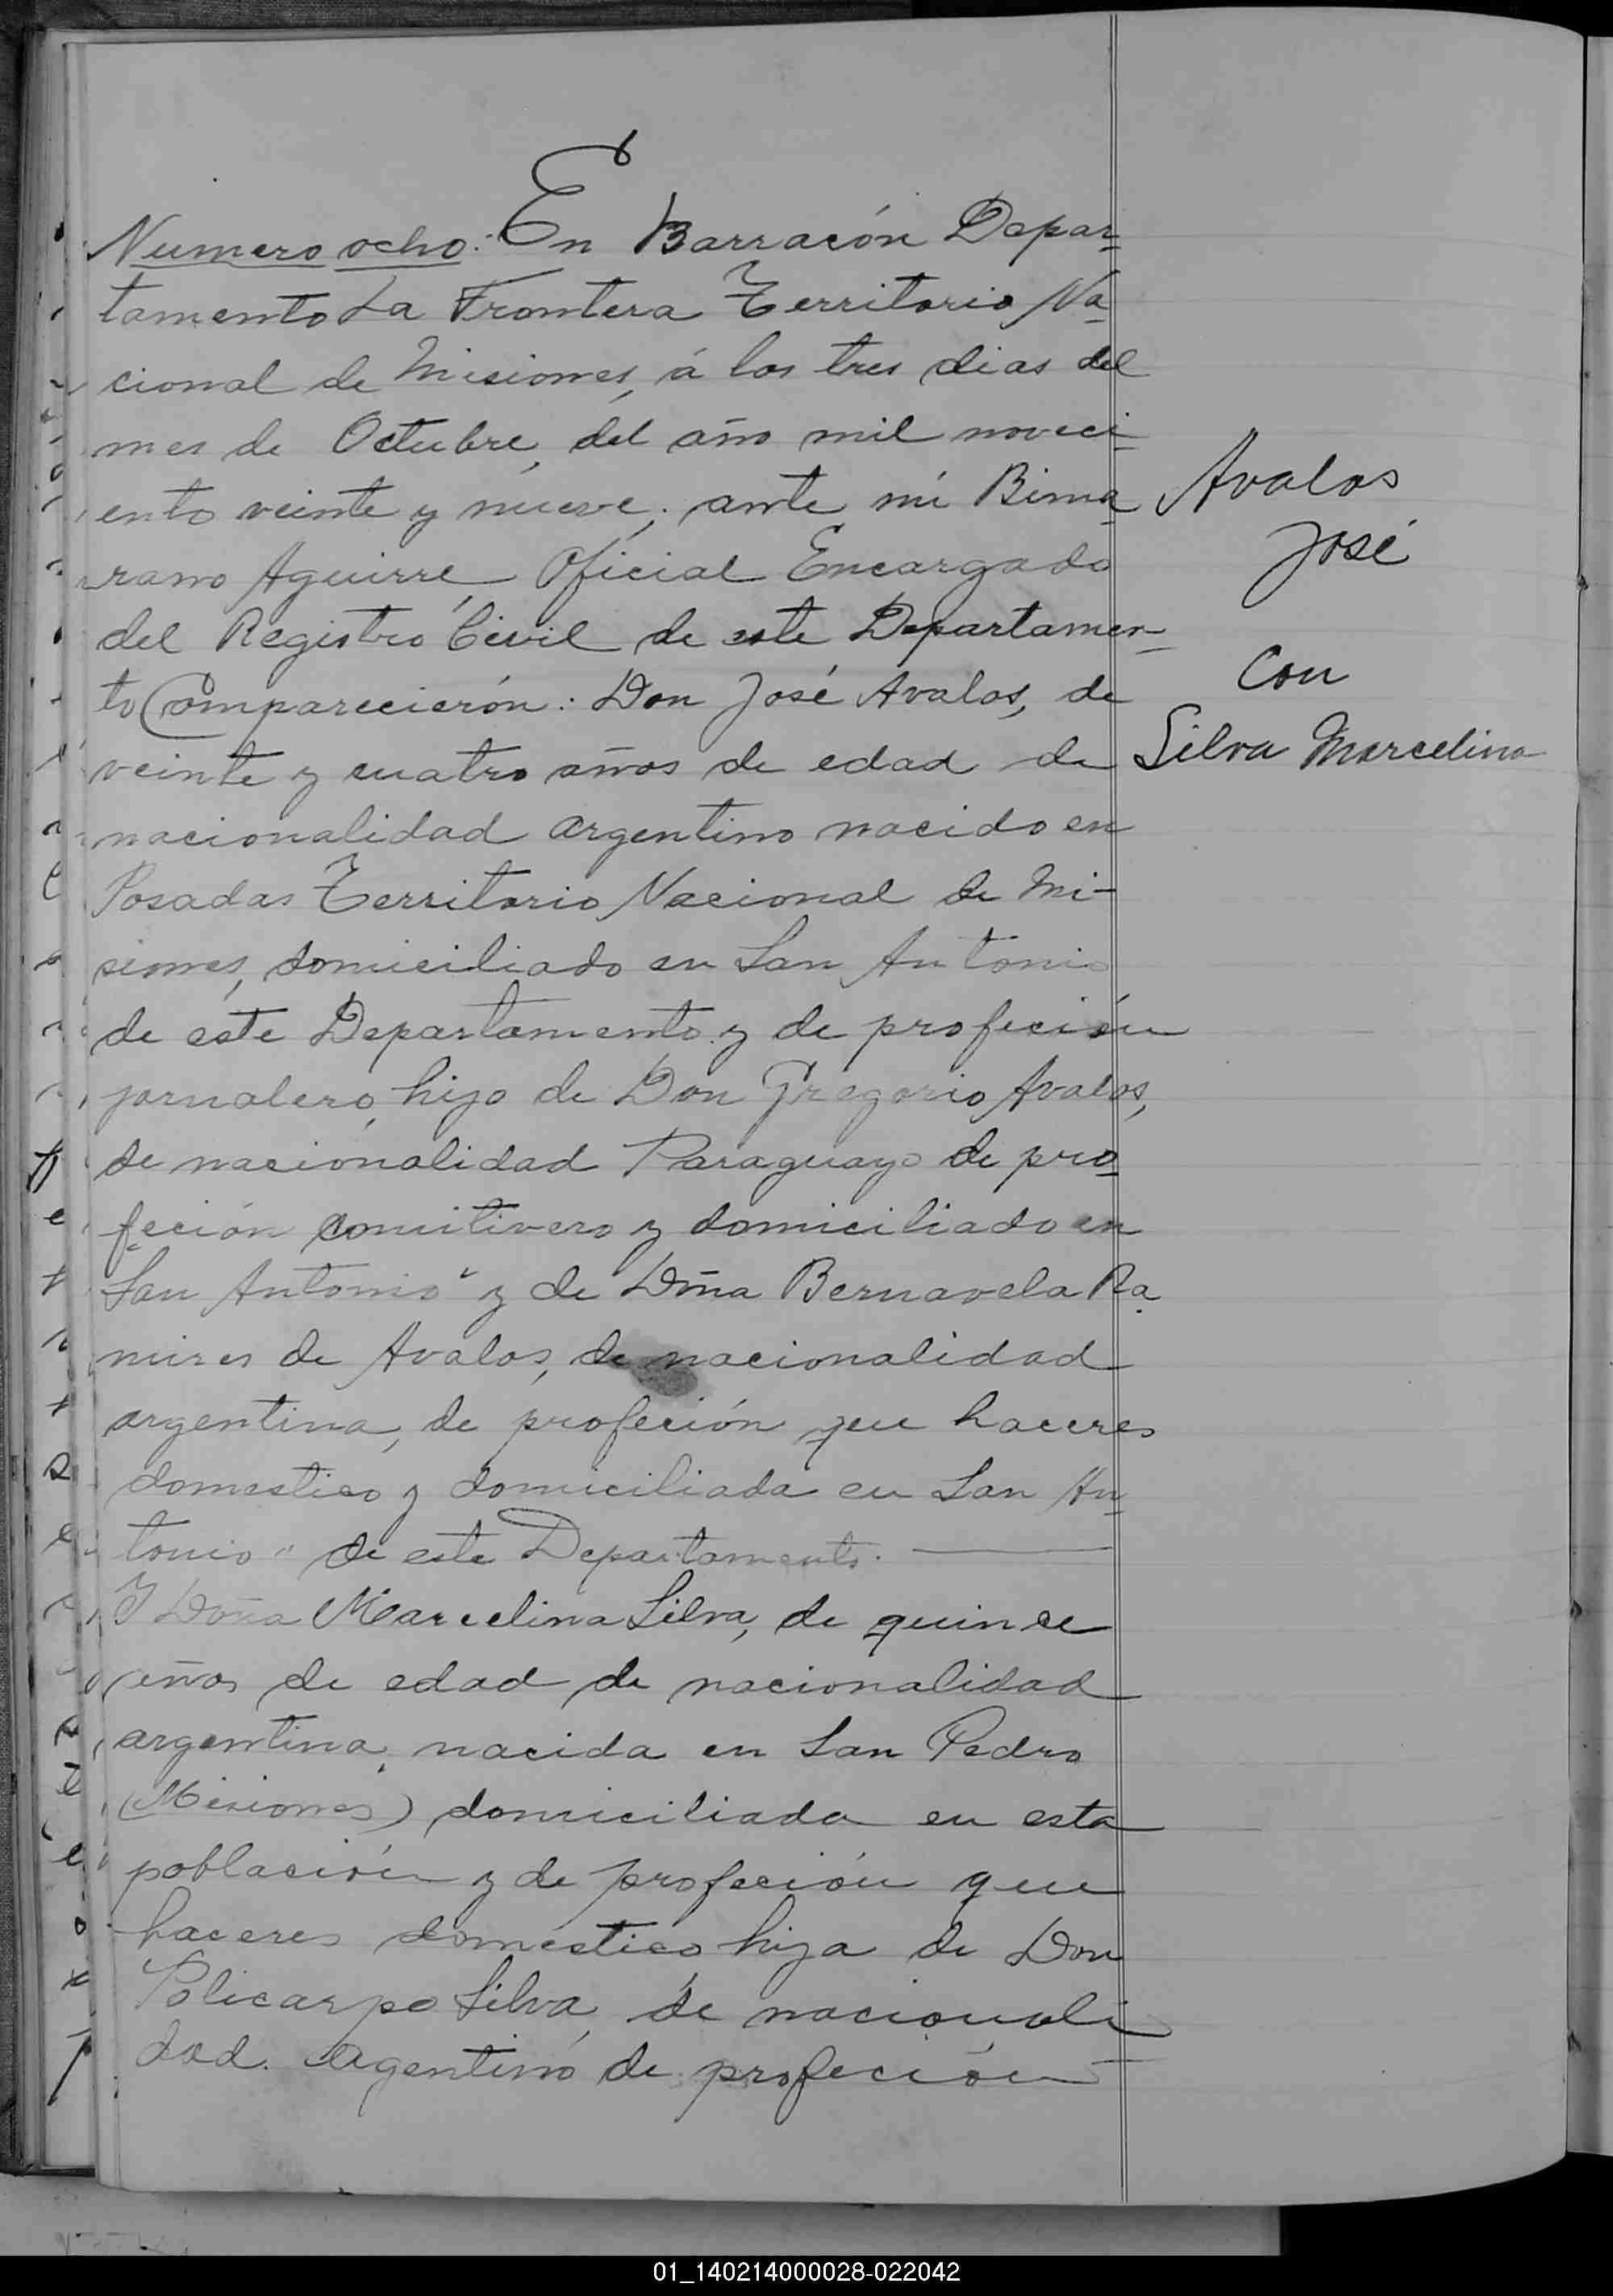 Numero ocho: En Barracón Depar-
tamento La Frontera Territorio Na-
cional de Misiones, á los tres dias del
mes de Octubre, del año mil noveci-
ento veinte y nueve; ante mi Bima-
rano Aguirre, Oficial Encargado
del Registro Civil de este Departamen-
to Comparecierón: Don José Avalos, de
veinte y cuatro años de edad de
nacionalidad argentino nacido en
Posadas Territorio Nacional de Mi-
siones, domiciliado en San Antonio
de este Departamento y de profeción
jornalero, hijo de Don Gregorio Avalos,
de nacionalidad Paraguayo de pro-
feción y domiciliado en
San Antonio" y de Dña Bernavela Ra-
mires de Avalos, de nacionalidad
argentina, de profeción que haceres
domestico y domiciliada en San An-
tonio" de este Departamento.
Y Doña Marcelina Silva, de quince
años de edad de nacionalidad
argentina, nacida en San Pedro
(Misiones) domiciliada en esta
población y de profeción que
haceres domestico, hija de Don
Policarpo Silva, de nacionali
dad. argentino de profeción
Avalos
José
Con
Silva Marcelina
01_140214000028-022042